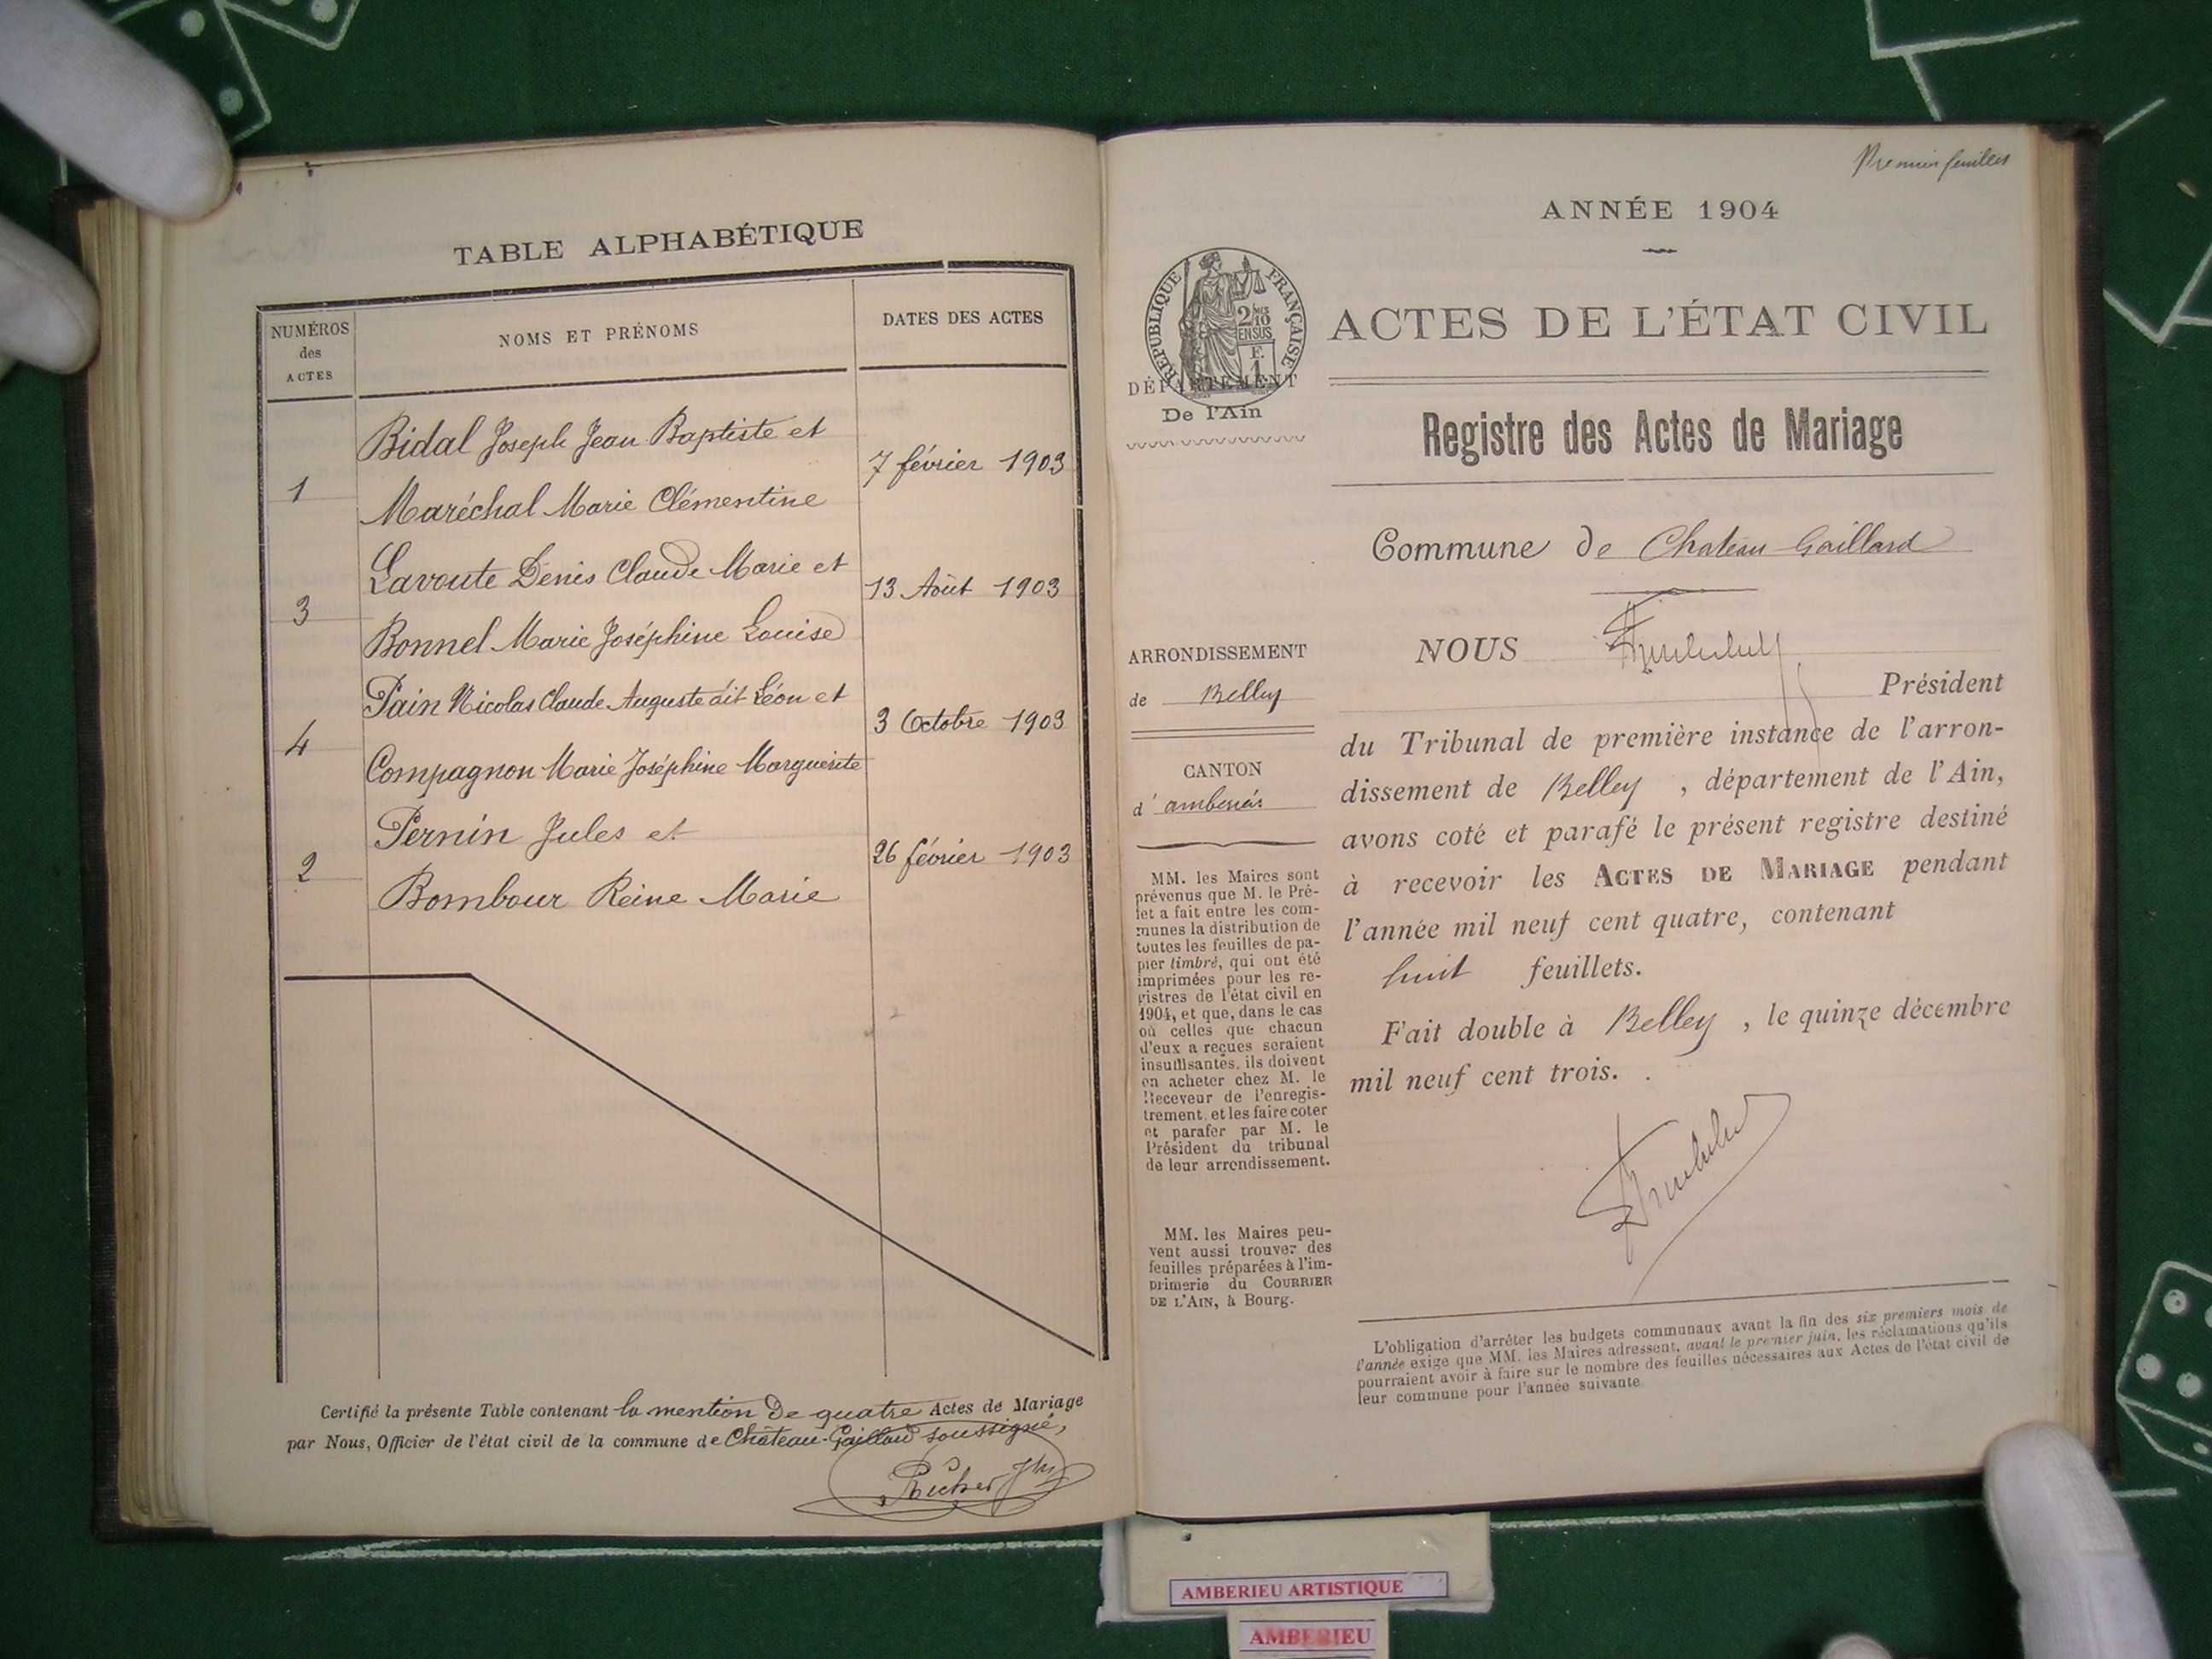 TABLE ALPHABÉTIQUE
NUMÉROS
des
ACTES
NOMS ET PRÉNOMS
DATES DES ACTES
Bidal Joseph Jean Baptiste et
1
7 février 1903
Maréchal Marie Clémentine
Lavoute Denis Claude Marie et
3
13 Août 1903
Bonnel Marie Joséphine Louise
Pain Nicolas Claude Auguste dit Léon et
4
3 Octobre 1903
Compagnon Marie Joséphine Marguerite
Pernin Jules et
2
26 février 1903
Bombour Reine Marie
Certifié la présente Table contenant la mention de quatre Actes de Mariage
par Nous, Officier de l'état civil de la commune de Château-Gaillard soussigné,
Premier feuillet
ANNÉE 1904
RÉPUBLIQUE FRANÇAISE
2/10 EN SUS
F. 1
DÉPARTEMENT
De l'Ain
ACTES DE L'ÉTAT CIVIL
Registre des Actes de Mariage
Commune de Chateau Gaillard
ARRONDISSEMENT
de Belley
CANTON
d'
MM. les Maires sont
prévenus que M. le Pré-
fet a fait entre les com-
munes la distribution de
toutes les feuilles de pa-
pier timbré, qui ont été
imprimées pour les re-
gistres de l'état civil en
1904, et que, dans le cas
où celles que chacun
d'eux a reçues seraient
insuffisantes, ils doivent
en acheter chez M. le
Receveur de l'enregis-
trement, et les faire coter
et parafer par M. le
Président du tribunal
de leur arrondissement.
MM. les Maires peu-
vent aussi trouver des
feuilles préparées à l'im-
primerie du COURRIER
DE L'AIN, à Bourg.
NOUS
Président
du Tribunal de première instance de l'arron-
dissement de Belley , département de l'Ain,
avons coté et parafé le présent registre destiné
à recevoir les ACTES DE MARIAGE pendant
l'année mil neuf cent quatre, contenant
huit feuillets.
Fait double à Belley , le quinze décembre
mil neuf cent trois.
L'obligation d'arrêter les budgets communaux avant la fin des six premiers mois de
l'année exige que MM. les Maires adressent, avant le premier juin, les réclamations qu'ils
pourraient avoir à faire sur le nombre des feuilles nécessaires aux Actes de l'état civil de
leur commune pour l'année suivante
AMBERIEU ARTISTIQUE
AMBERIEU